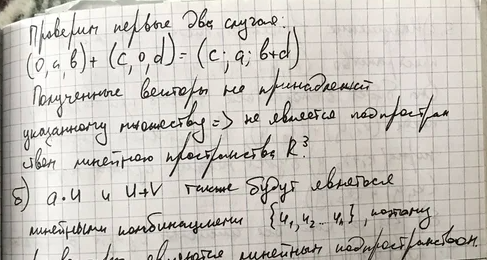 Проверим первые два случая:
(0, a, в) + (c, 0, d) = (c; a; в+d)
Полученные векторы не принадлежат
указанному множеству => не является подпростран
ством линейного пространства R³.
б) a·u и u+v также будут являться
линейными комбинациями {u₁, u₂ .. uₙ}, поэтому
являются линейным подпространством.